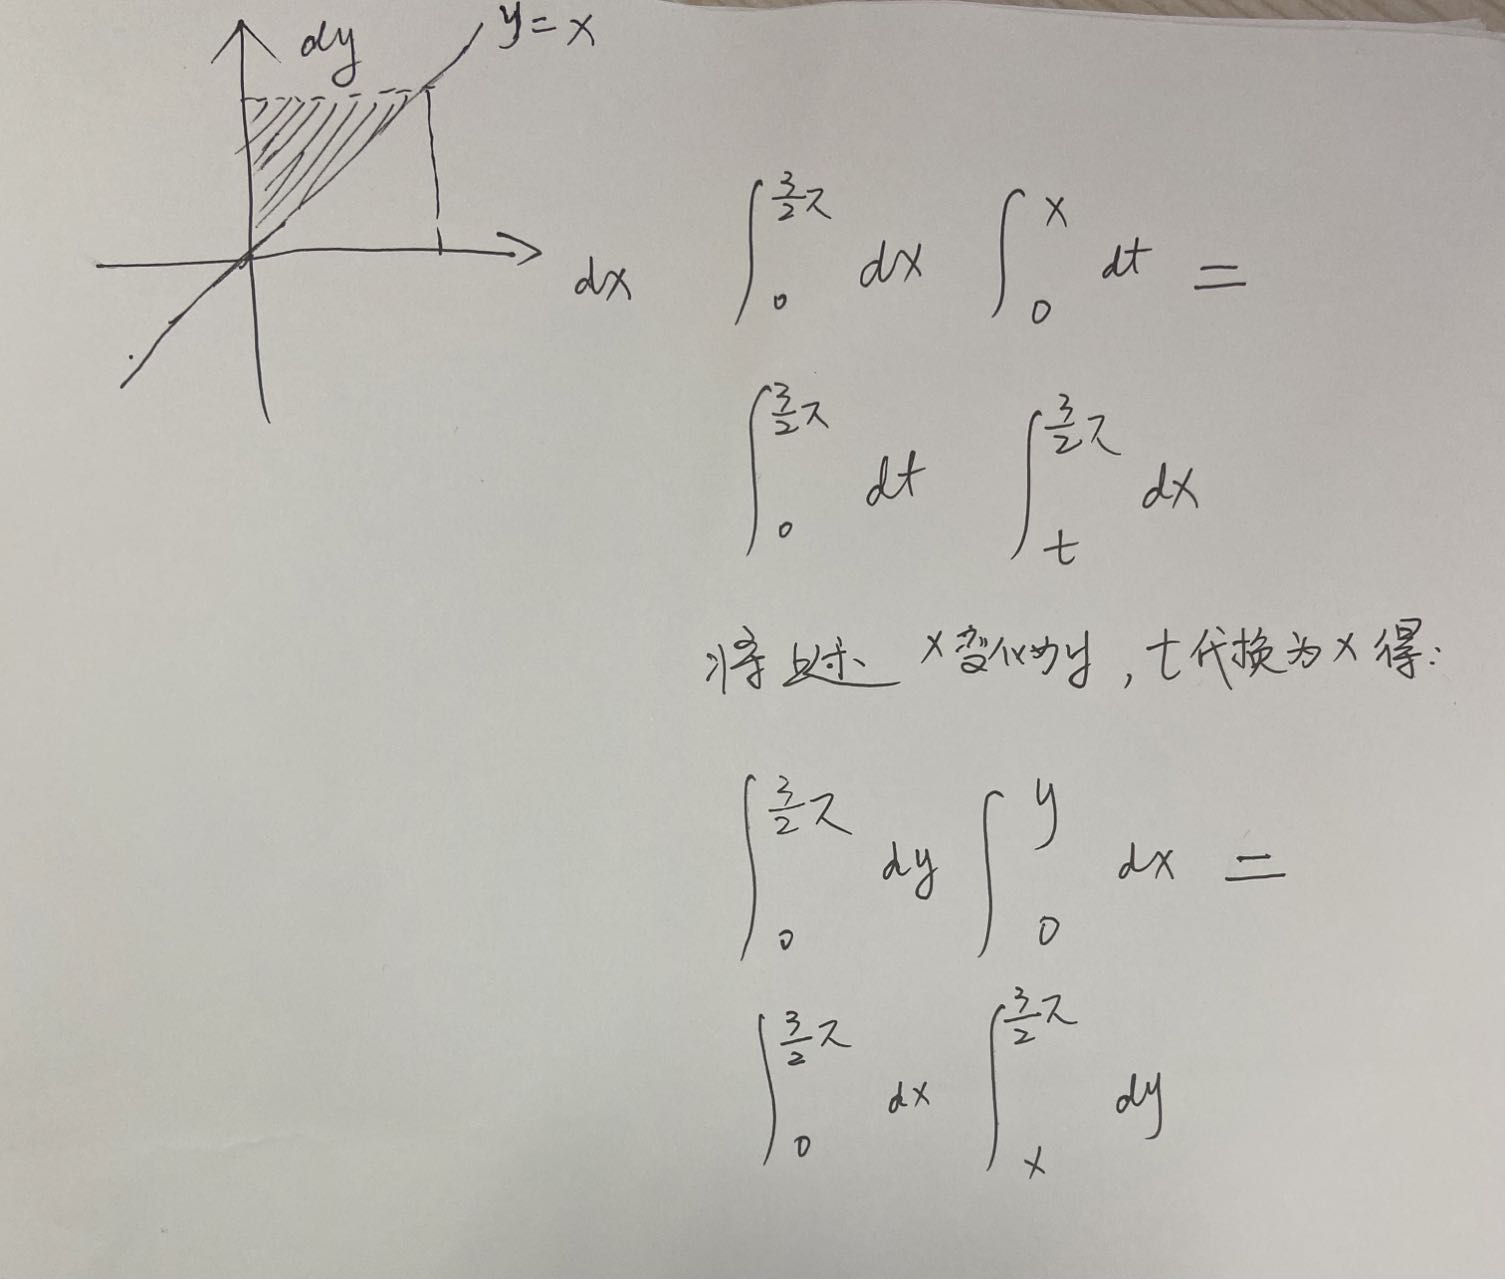 dy
y=x
dx
∫₀^{3/2 π} dx ∫₀^x dt =
∫₀^{3/2 π} dt ∫_t^{3/2 π} dx
将 x变化为y，t代换为x得：
∫₀^{3/2 π} dy ∫₀^y dx =
∫₀^{3/2 π} dx ∫_x^{3/2 π} dy